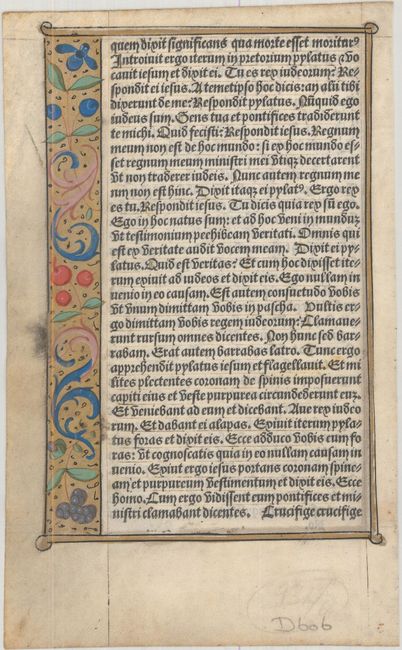 quem dixit significans qua morte esset moriturꝰ
Introiuit ergo iterum in pretorium pylatus ⁊ vo
cauit iesum et dixit ei. Tu es rex iudeorum? Re-
spondit ei iesus. A temetipso hoc dicis: an alii tibi
dixerunt de me? Respondit pylatus. Nūquid ego
iudeus sum. Gens tua et pontifices tradiderunt
te michi. Quid fecisti? Respondit iesus. Regnum
meum non est de hoc mundo: si ex hoc mundo es-
set regnum meum ministri mei vtiqꝫ decertarent
vt non traderer iudeis. Nunc autem regnum me
um non est hinc. Dixit itaqꝫ ei pylatꝰ. Ergo rex
es tu. Respondit iesus. Tu dicis quia rex sū ego.
Ego in hoc natus sum: et ad hoc veni in munduꝫ
vt testimonium perhibeam veritati. Omnis qui
est ex veritate audit vocem meam. Dixit ei py-
latus. Quid est veritas? Et cum hoc dixisset ite-
rum exiuit ad iudeos et dixit eis. Ego nullam in
uenio in eo causam. Est autem consuetudo vobis
vt vnum dimittam vobis in pascha. Vultis er-
go dimittam vobis regem iudeorum? Clamaue-
runt rursum omnes dicentes. Non hunc sed bar-
rabam. Erat autem barrabas latro. Tunc ergo
apprehendit pylatus iesum et flagellauit. Et mi
lites plectentes coronam de spinis imposuerunt
capiti eius et veste purpurea circundederunt euꝫ.
Et veniebant ad eum et dicebant. Aue rex iudeo
rum. Et dabant ei alapas. Exiuit iterum pyla-
tus foras et dixit eis. Ecce adduco vobis eum fo
ras: vt cognoscatis quia in eo nullam causam in
uenio. Exiut ergo iesus portans coronam spine-
am et purpureum vestimentum et dixit eis. Ecce
homo. Cum ergo vidissent eum pontifices et mi-
nistri clamabant dicentes. Crucifige crucifige
D606